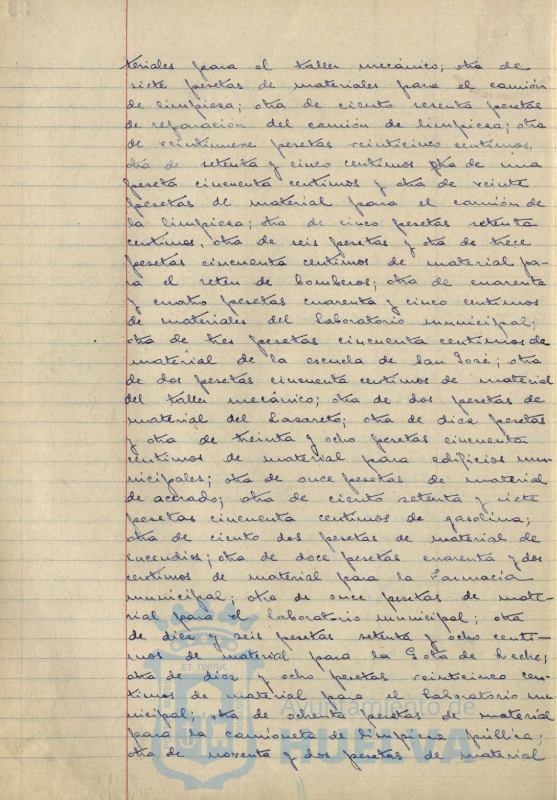 teriales para el taller mecánico; otra de
siete pesetas de materiales para el camión
de limpiesa; otra de ciento sesenta pesetas
de reparación del camión de limpiesa; otra
de veintinueve pesetas veinticinco centimos,
otra de setenta y cinco centimos otra de una
peseta cincuenta centimos y otra de veinte
pesetas de material para el camión de
la limpiesa; otra de cinco pesetas setenta
centimos, otra de seis pesetas y otra de trece
pesetas cincuenta centimos de material pa-
ra el reten de bomberos; otra de cuarenta
y cuatro pesetas cuarenta y cinco centimos
de materiales del Laboratorio municipal;
otra de tres pesetas cincuenta centimos de
material de la escuela de San José; otra
de dos pesetas cincuenta centimos de material
del taller mecánico; otra de dos pesetas de
material del Lasareto; otra de diez pesetas
y otra de treinta y ocho pesetas cincuenta
centimos de material para edificios mu-
nicipales; otra de once pesetas de material
de acerado; otra de ciento setenta y siete
pesetas cincuenta centimos de gasolina;
otra de ciento dos pesetas de material de
incendios; otra de doce pesetas cuarenta y dos
centimos de material para la Farmacia
municipal; otra de once pesetas de mate-
rial para el Laboratorio municipal; otra
de diez y seis pesetas setenta y ocho centi-
mos de material para la Gota de Leche;
otra de diez y ocho pesetas veinticinco cen-
timos de material para el Laboratorio mu-
nicipal; otra de ochenta pesetas de material
para la camioneta de limpiesa pública;
otra de noventa y dos pesetas de material
Ayuntamiento de
HUELVA